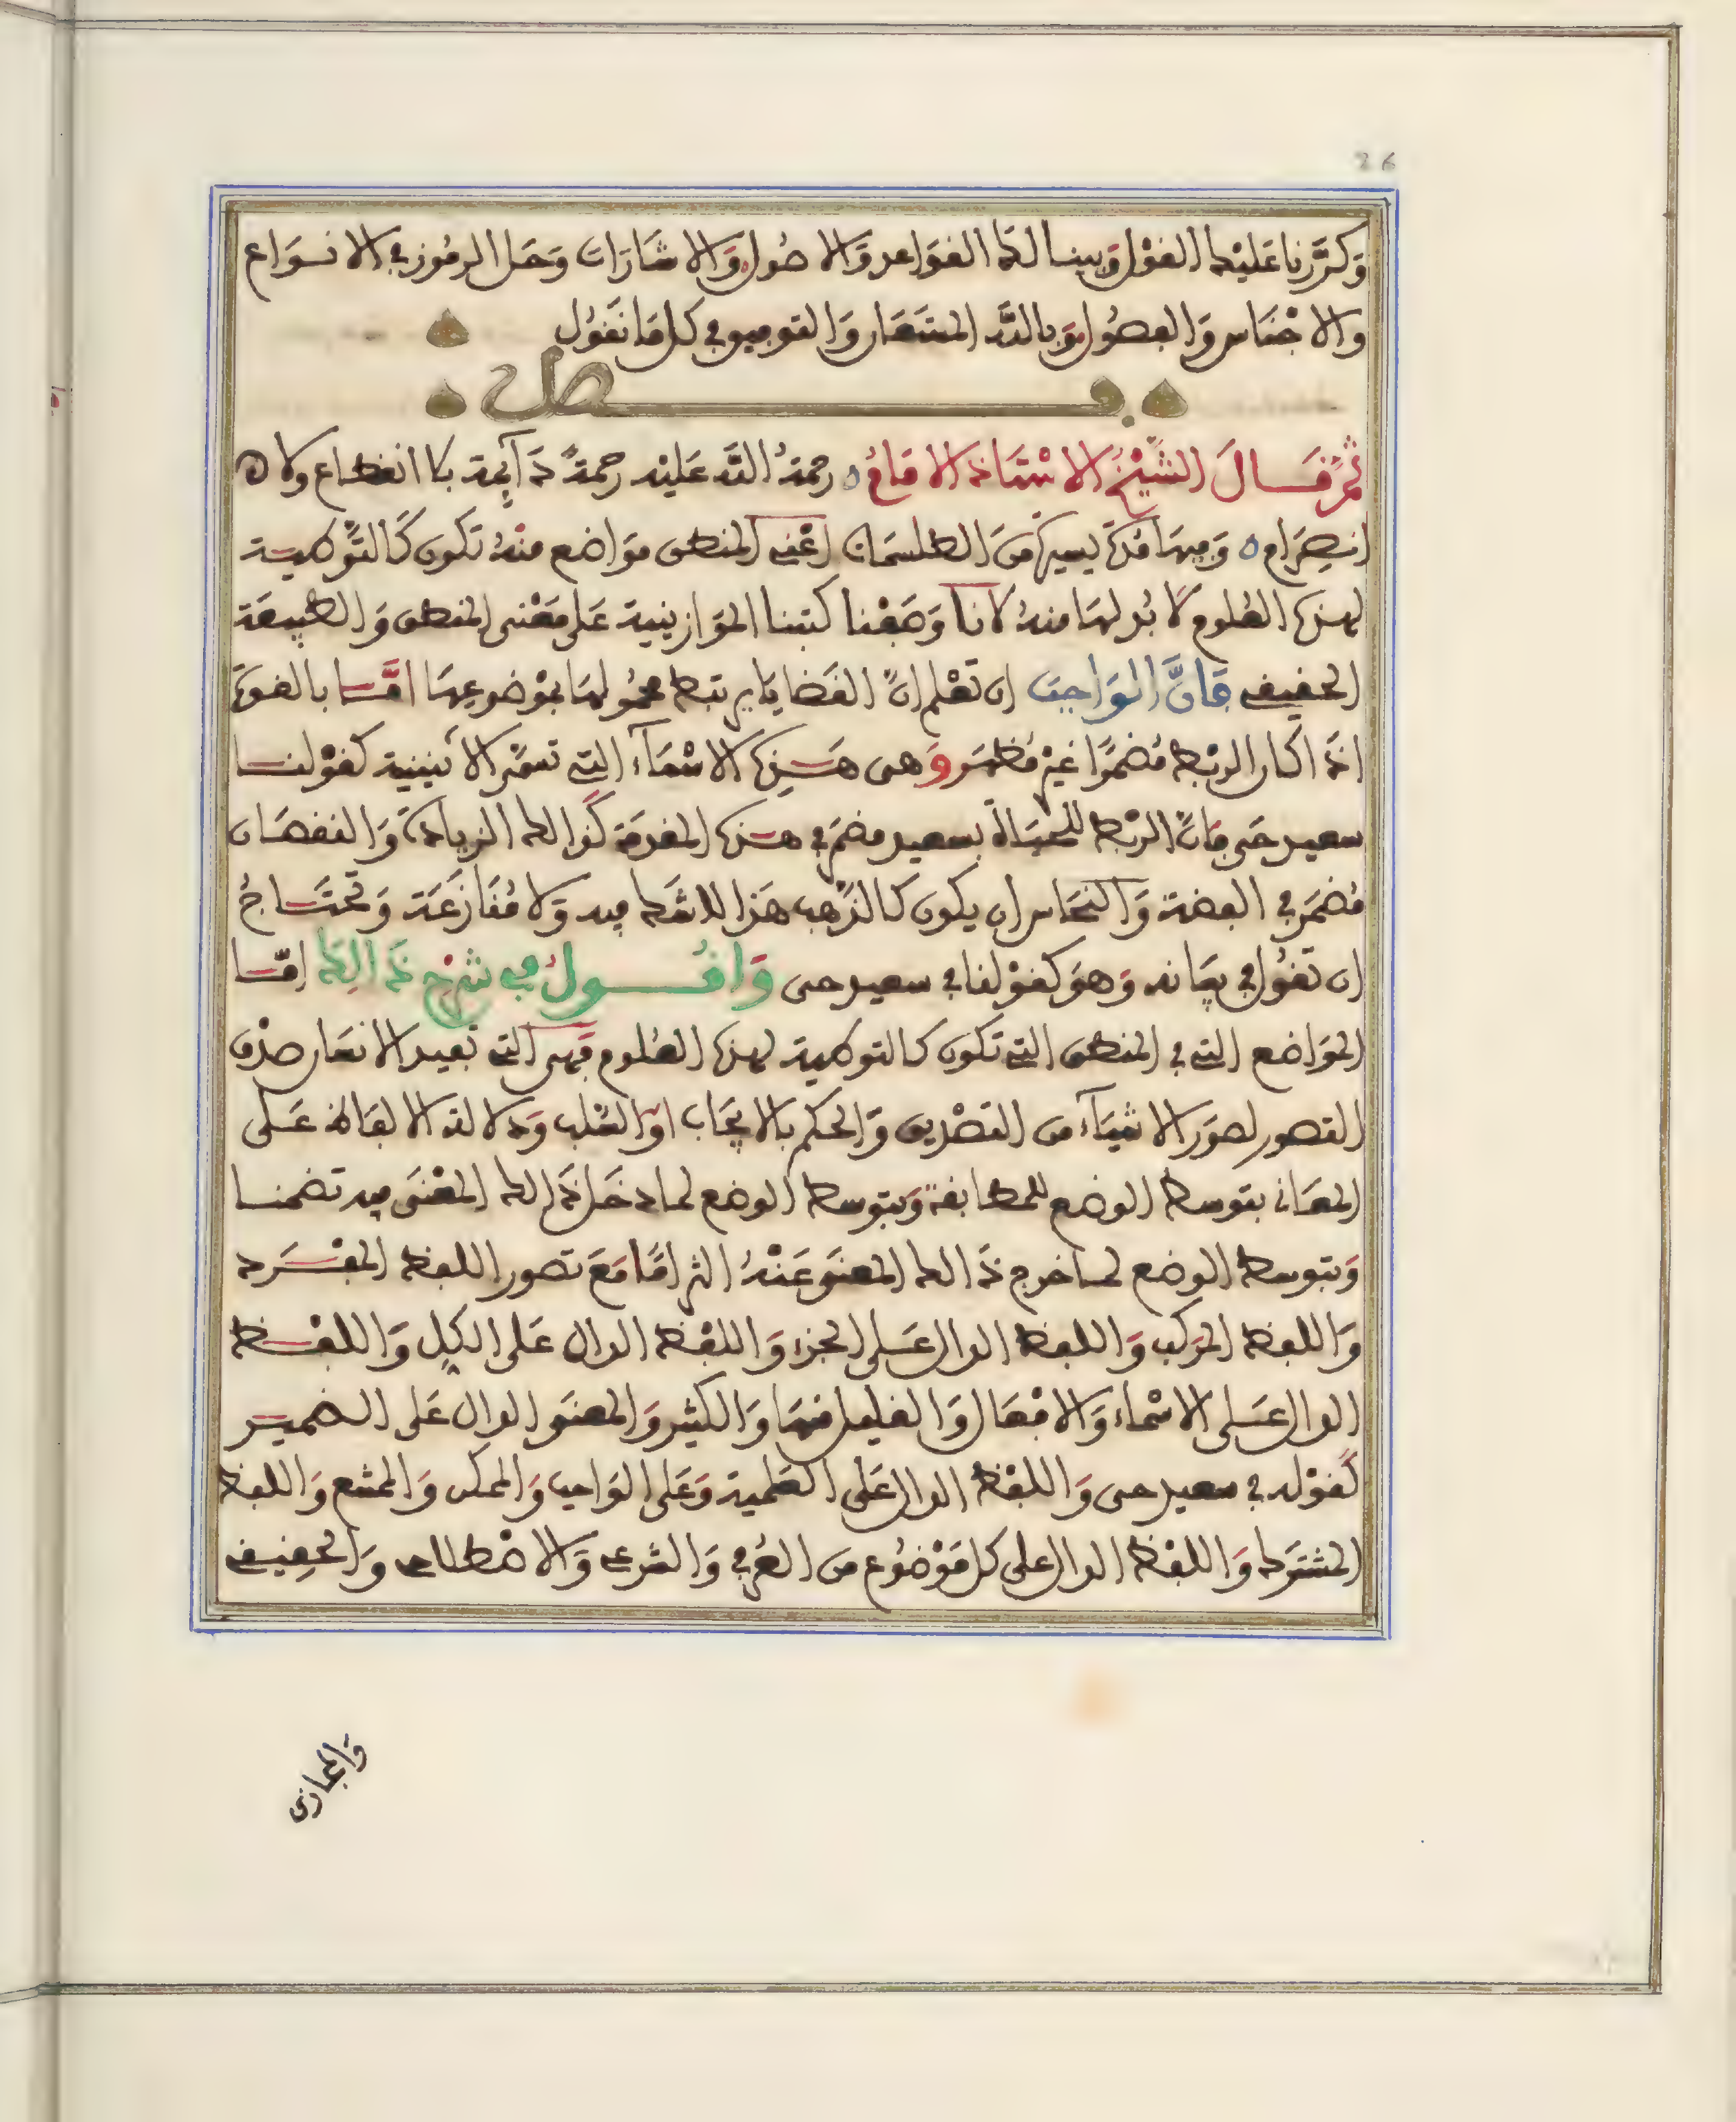 26
وَكرَّرنا عَليْك القوْل وَبينا لك القوَاعد وَالاصُول وَالاشارَات وَحَل الرمُوز في الانوَاع
والاجْنَاس وَالفصُول وَبالله المستَعَان وَالتوفيق في كل مَا نقوُل
فصل
ثمّ قَال الشيْخُ الاسْتاذ الامَامُ رحمةُ الله عَليْه رحمةً دَآئِمة بلا انقطاع ولا
انصِرَام وَفيهَا مُدة يسيرة منَ الطلسمات اعْني المنطق موَاضع منْهُ تكون كَالتوْطية
لهذه العلوم لا بُد لهَا منهُ لانا وَضعْنا كتبنا الموَازينية عَلى مَعْنى المنطق وَالطبيعَة
الحقيقي فانَّ الوَاجب ان تعْلم انّ القَضايَا يرتبط محموُلهَا بموْضوعِهَا امَّا بالقوة
اذَا كان الربْط مُضمَرًا غيْر مُظهَر وَهى هَذِه الاسْمَآء التي تسمَّى الاثينية كقوْلنا
سعيد حَي فانّ الربْط للحيَاة بسَعيد مضمَر في هذه المقدمَة كَذالك الزيادَة وَالنقصَان
مُضمَر في الفضة وَالنحَاس ان يكون كالذهب هَذا لا شَك فيه وَلا مُنَازعَة وَتحتَاجُ
ان تقوُل في بيَانه وَهوَ كقوْلنا في سعيد حى وَاقُول في شَرْح ذَالِك امَّا
الموَاضع التي في المنطق التي تكون كالتوطية لهذه العُلوم فهى التي تفيد الانسَان صدْق
التصور لصوَر الاشيَآء من التصْديق وَالحكم بالايجَاب اوْ السَّلب وَدلالة الالفَاظ عَلى
المعَاني بتوسط الوضع للمطابقة وَبتوسط الوضع لما دخَل ذَالك المعْنَى فيه تضمنا
وَبتوسط الوضع لما خرج ذَالك المعنَى عَنْهُ التزامًا مَعَ تصور اللفظ المفْرَد
وَاللفظ المرَكب وَاللفظ الدال عَلى الجزء وَاللفْظ الدال عَلى الكل وَاللفْظ
الدال عَلى الاسْماء وَالافْعَال وَالقليل منهَا وَالكثير وَالمعنَى الدال عَلى الضمير
كقوْله في سعيد حى وَاللفْظ الدال عَلى العَلمية وَعَلى الوَاجب وَالممكن وَالممتنع وَاللفظ
المشترَك وَاللفْظ الدال على كل مَوْضُوع من العُرفي وَالشرعى وَالاصْطلاحى وَالحقِيقى
وَالمجَازى